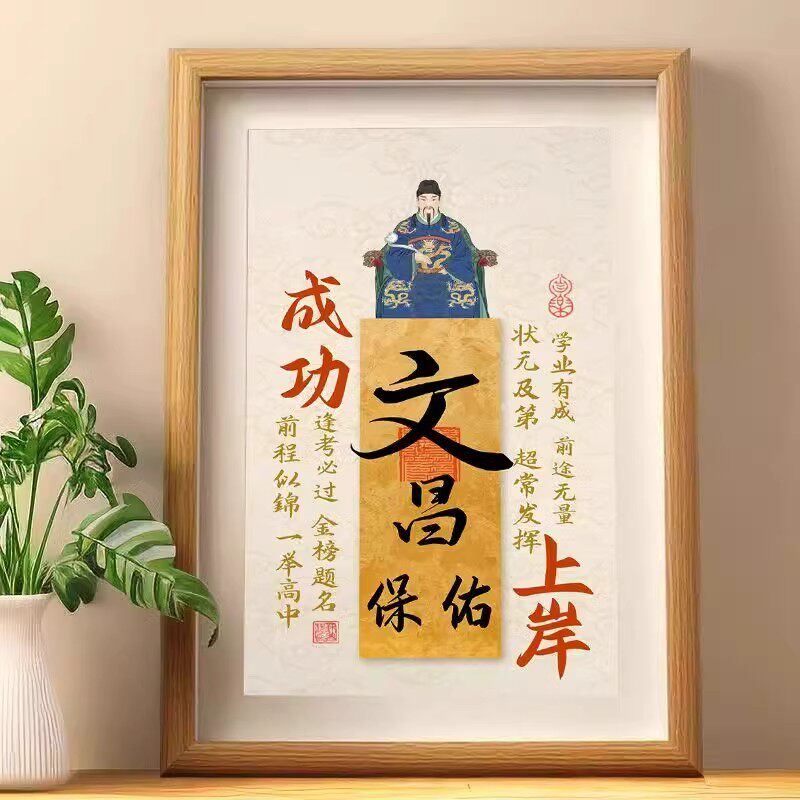 文昌
保佑
成功
上岸
学业有成 前途无量
状元及第 超常发挥
逢考必过 金榜题名
前程似錦 一举高中